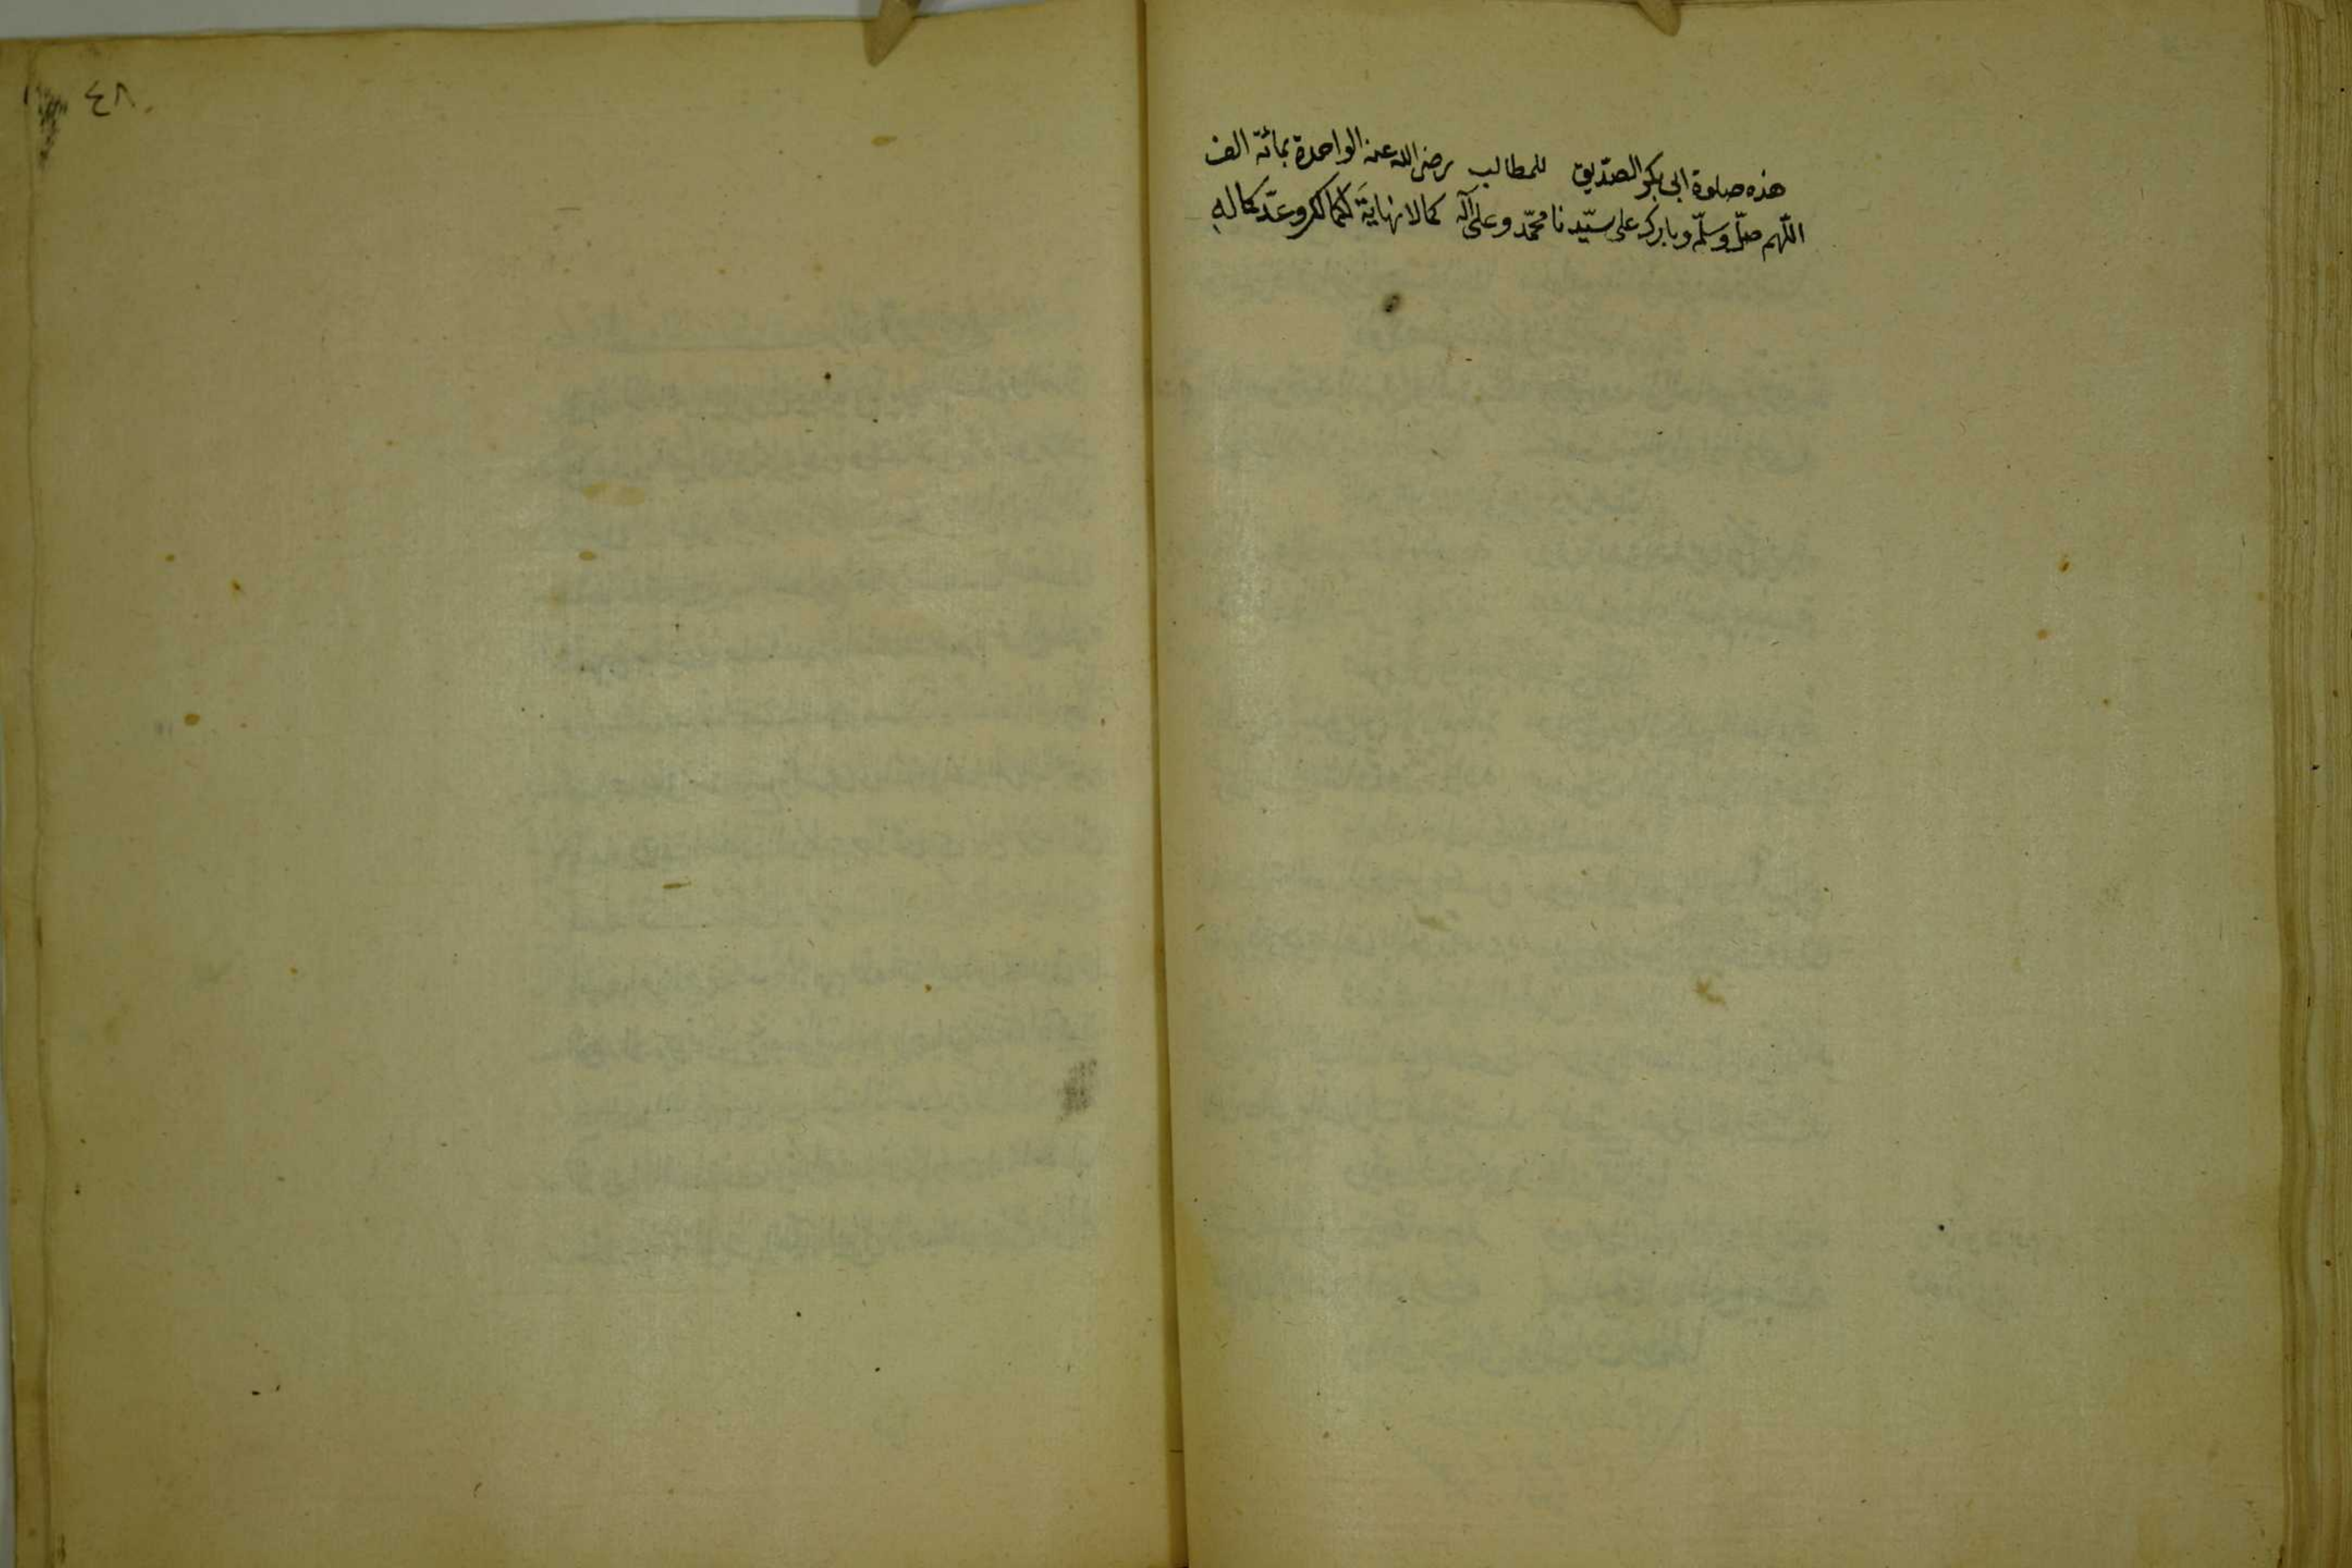 هذه صلوة ابى بكر الصدّيق للمطالب رضى الله عنه الواحدة بمائة الف
اللّهم صلّ وسلّم وبارك على سيّدنا محمّد وعلى آله كما لا نهايةَ لكمالك وعدّ كماله
٤٨